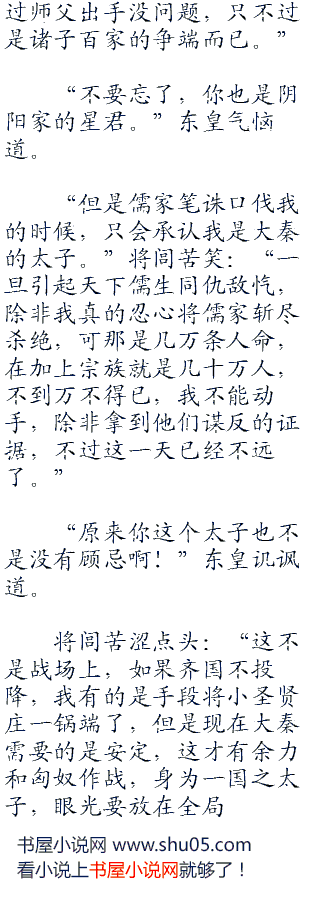 过师父出手没问题，只不过
是诸子百家的争端而已。”
“不要忘了，你也是阴
阳家的星君。”东皇气恼
道。
“但是儒家笔诛口伐我
的时候，只会承认我是大秦
的太子。”将闾苦笑：“一
旦引起天下儒生同仇敌忾，
除非我真的忍心将儒家斩尽
杀绝，可那是几万条人命，
在加上宗族就是几十万人，
不到万不得已，我不能动
手，除非拿到他们谋反的证
据，不过这一天已经不远
了。”
“原来你这个太子也不
是没有顾忌啊！”东皇讥讽
道。
将闾苦涩点头：“这不
是战场上，如果齐国不投
降，我有的是手段将小圣贤
庄一锅端了，但是现在大秦
需要的是安定，这才有余力
和匈奴作战，身为一国之太
子，眼光要放在全局
书屋小说网 www.shu05.com
看小说上书屋小说网就够了！